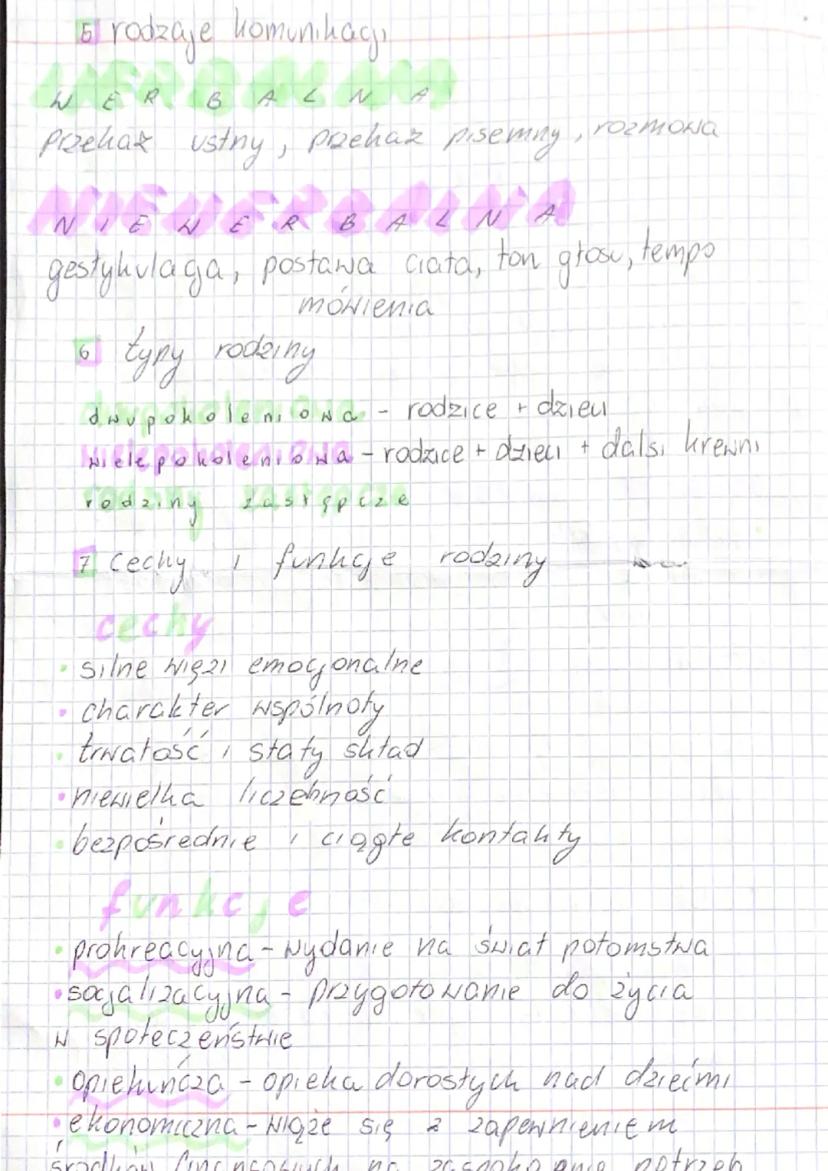 5 rodzaje komunikacji
WERBALNA
przekaz ustny, przekaz pisemny, rozmowa
NIEWERBALNA
gestykulacja, postawa ciała, ton głosu, tempo
mówienia
6 typy rodziny
dwupokoleniowa - rodzice + dzieci
wielopokoleniowa - rodzice + dzieci + dalsi krewni
rodziny zastępcze
7 cechy i funkcje rodziny
cechy
• silne więzi emocjonalne
• charakter wspólnoty
• trwałość i stały skład
• niewielka liczebność
• bezpośrednie i ciągłe kontakty
funkcje
• prokreacyjna - wydanie na świat potomstwa
• socjalizacyjna - przygotowanie do życia
w społeczeństwie
• opiekuńcza - opieka dorosłych nad dziećmi
• ekonomiczna - wiąże się z zapewnieniem
środków finansowych na zaspokojenie potrzeb